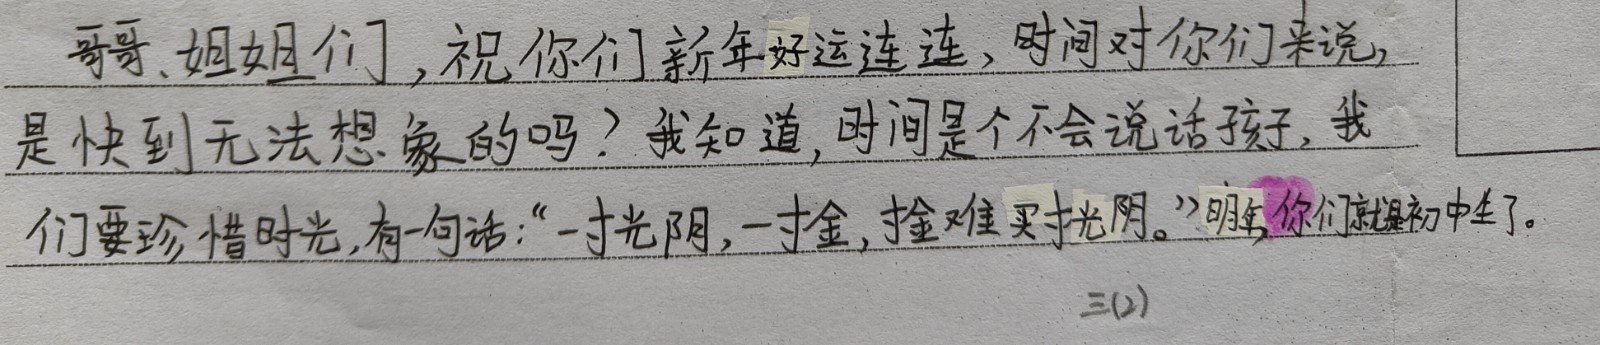 哥哥、姐姐们，祝你们新年好运连连，时间对你们来说，
是快到无法想象的吗？我知道，时间是个不会说话孩子，我
们要珍惜时光，有一句话：“一寸光阴，一寸金，寸金难买寸光阴。”明年，你们就是初中生了。
三(2)